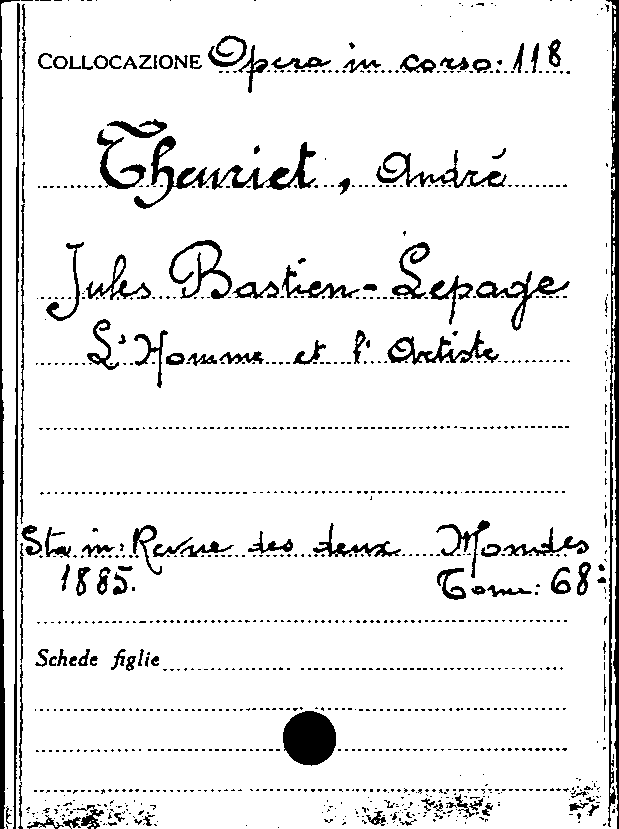 COLLOCAZIONE Opera in corso: 118
Theuriet, André
Jules Bastien-Lepage
L'Homme et l'Artiste
Sta in: Revue des deux Mondes
1885. Tome: 68:
Schede figlie